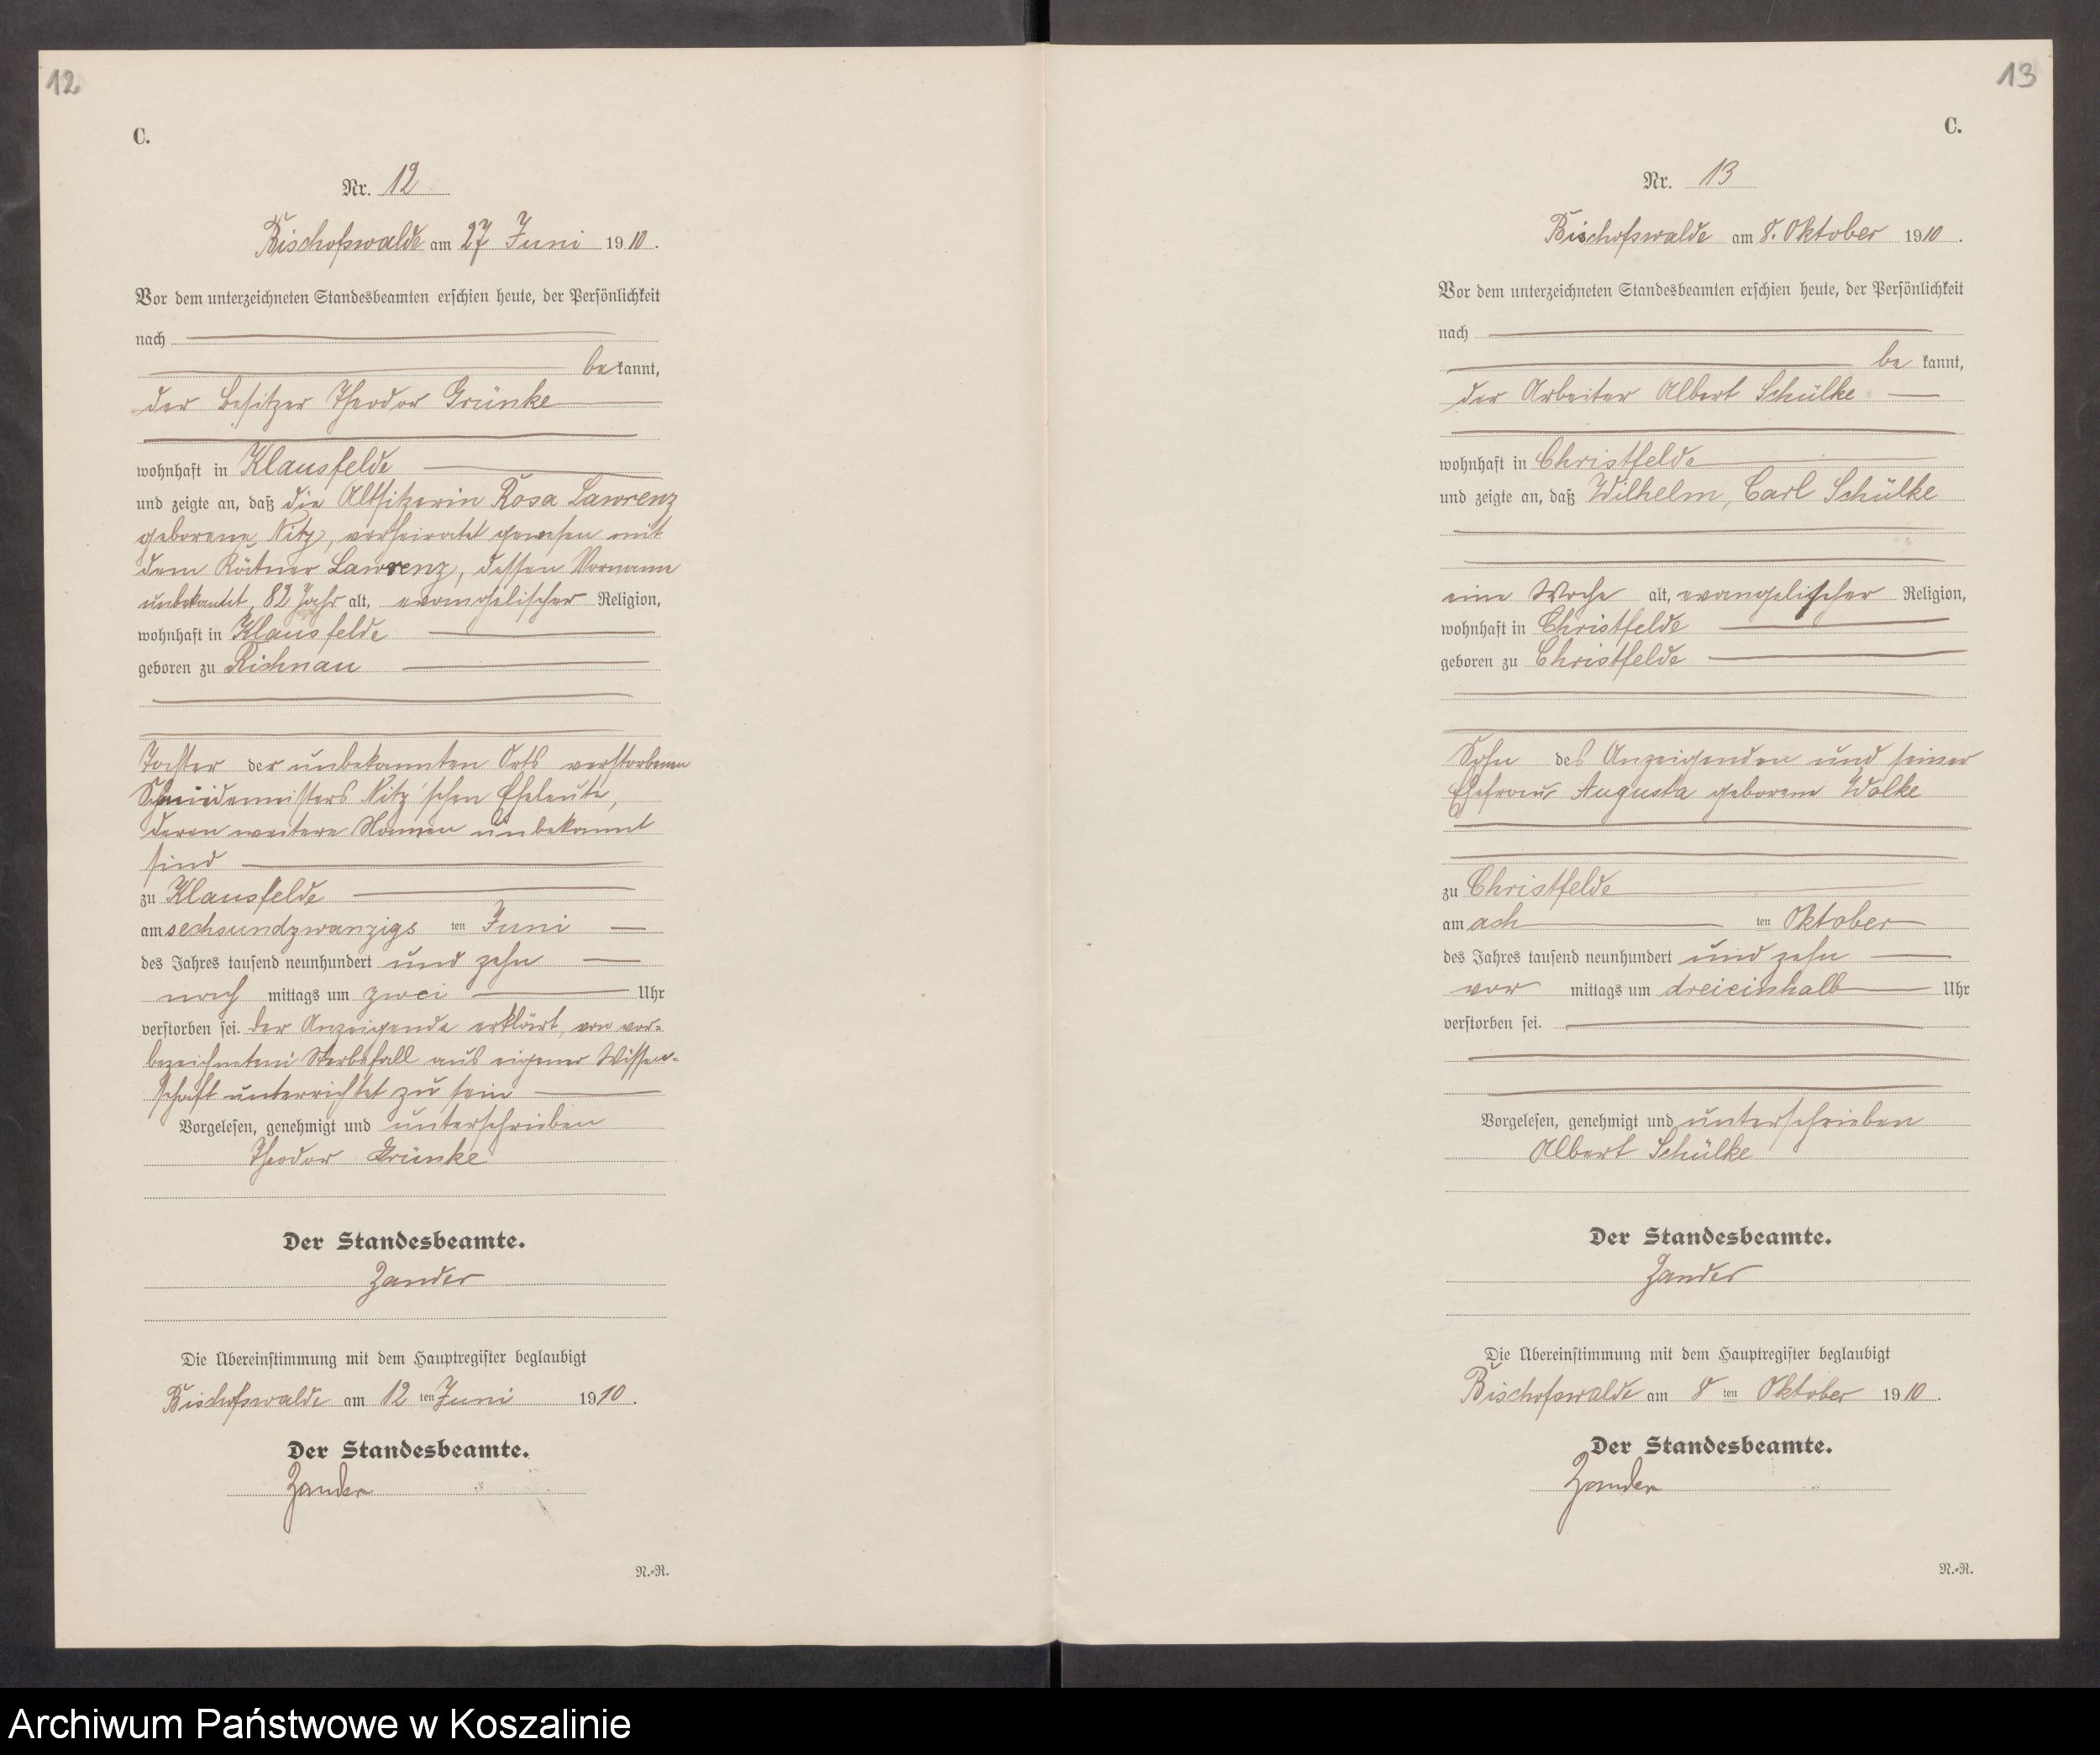 12
C.
Nr. 12
Bischofswalde am 27 Juni 1910.
Vor dem unterzeichneten Standesbeamten erschien heute, der Persönlichkeit
nach
bekannt,
der Besitzer Theodor Grünke
wohnhaft in Klausfelde
und zeigte an, daß die Altsitzerin Rosa Lawrenz
geborene Nitz, verheiratet gewesen mit
dem Lawrenz, dessen Vorname
82 Jahr alt, evangelischer Religion,
wohnhaft in Klausfelde
geboren zu Richnau
Tochter der unbekannten Orts verstorbenen
Schmiedemeisters Nitz'schen Eheleute,
deren weitere Namen unbekannt
sind
zu Klausfelde
am sechsundzwanzigs ten Juni
des Jahres tausend neunhundert und zehn
nach mittags um zwei Uhr
verstorben sei. Der Anzeigende erklärt, von vor-
bezeichneten Sterbefall aus eigener Wissen-
schaft unterrichtet zu sein
Vorgelesen, genehmigt und unterschrieben
Theodor Grünke
Der Standesbeamte.
Zander
Die Übereinstimmung mit dem Hauptregister beglaubigt
Bischofswalde am 12 ten Juni 1910.
Der Standesbeamte.
Zander
N.-R.
13
C.
Nr. 13
Bischofswalde am 8. Oktober 1910.
Vor dem unterzeichneten Standesbeamten erschien heute, der Persönlichkeit
nach
be kannt,
der Arbeiter Albert Schülke
wohnhaft in Christfelde
und zeigte an, daß Wilhelm, Carl Schülke
eine Woche alt, evangelischer Religion,
wohnhaft in Christfelde
geboren zu Christfelde
Sohn des Anzeigenden und seiner
Ehefrau Augusta geborene Wolke
zu Christfelde
am ach ten Oktober
des Jahres tausend neunhundert und zehn
vor mittags um dreieinhalb Uhr
verstorben sei.
Vorgelesen, genehmigt und unterschrieben
Albert Schülke
Der Standesbeamte.
Zander
Die Übereinstimmung mit dem Hauptregister beglaubigt
Bischofswalde am 8 ten Oktober 1910.
Der Standesbeamte.
Zander
N.-R.
Archiwum Państwowe w Koszalinie